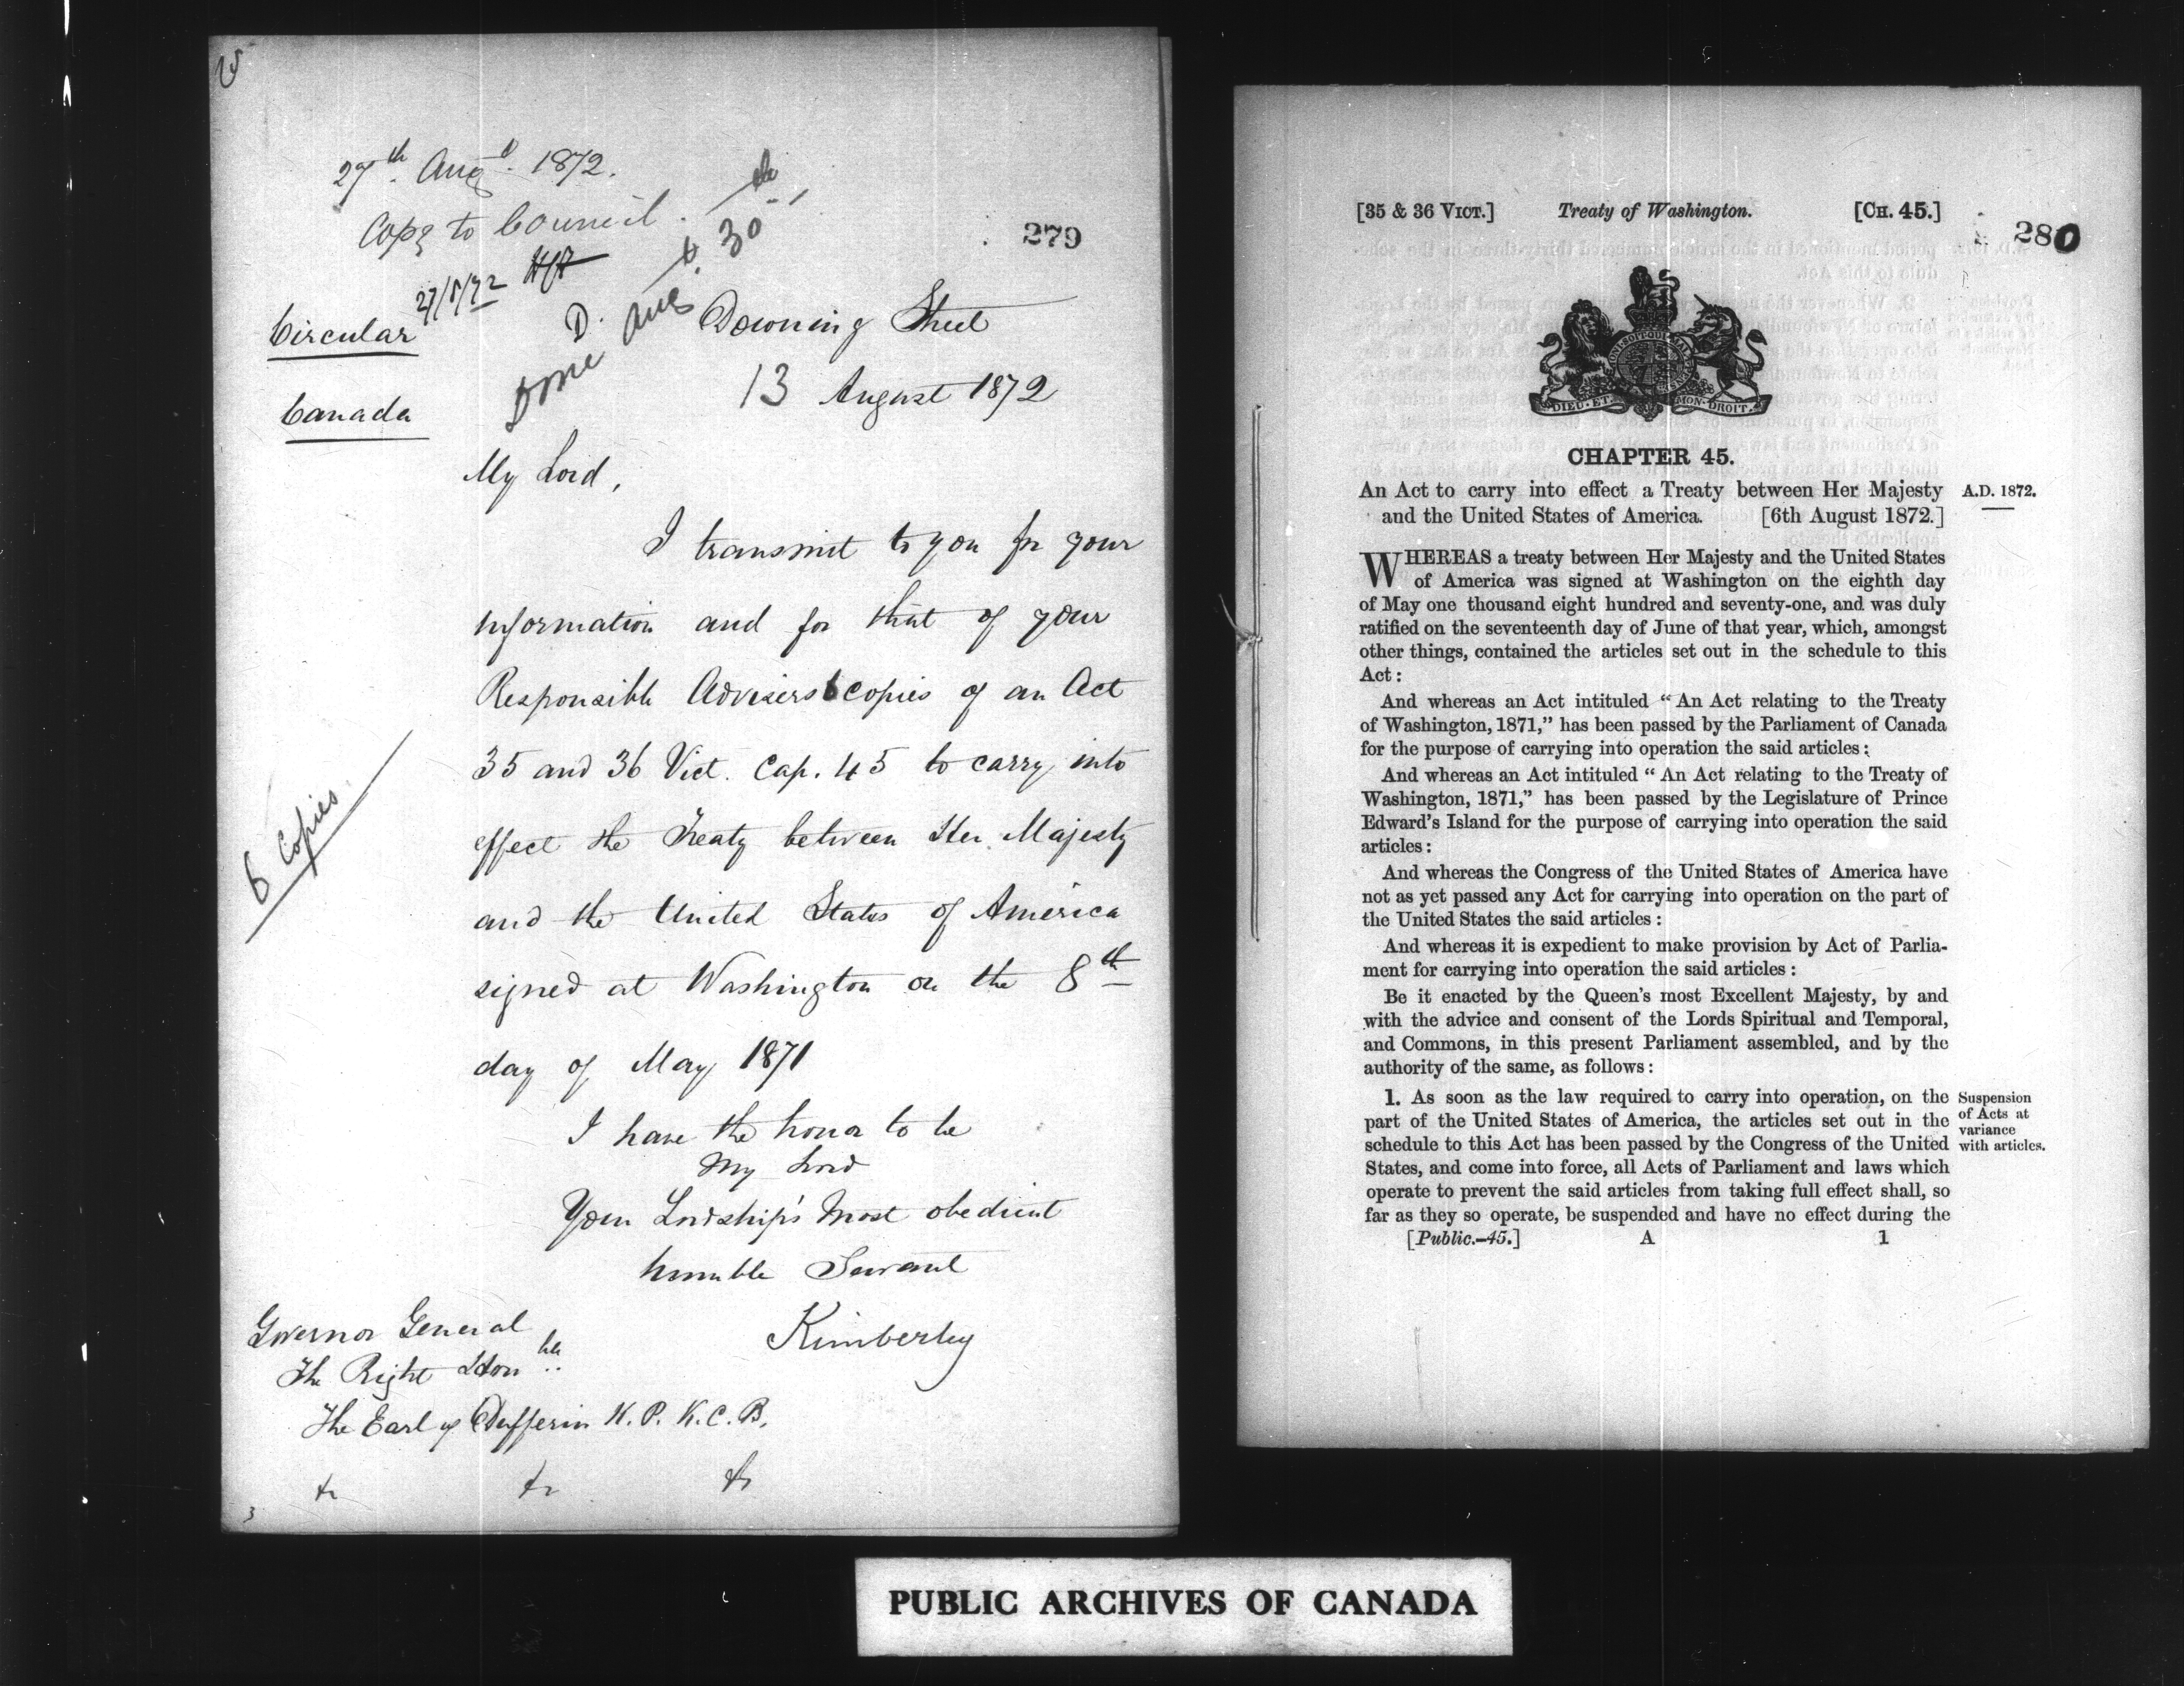 27th Augt. 1872.
Copy to Council.
27/8/72
D.
Done Augt. 30th
279
Circular
Canada
Downing Street
13 August 1872
My Lord,
I transmit to you for your
information and for that of your
Responsible Advisers 6 copies of an Act
35 and 36 Vict. Cap. 45 to carry into
effect the Treaty between Her Majesty
and the United States of America
signed at Washington on the 8th
day of May 1871
6 Copies.
I have the honor to be
My Lord
Your Lordship's Most obedient
humble Servant
Kimberley
Governor General
The Right Honble
The Earl of Dufferin K. P. K. C. B.
&c &c &c
[35 & 36 VICT.] Treaty of Washington. [CH. 45.]
280
UNI·SOIT·QUI·MAL
DIEU·ET· MON·DROIT·
CHAPTER 45.
An Act to carry into effect a Treaty between Her Majesty A.D. 1872.
and the United States of America. [6th August 1872.]
WHEREAS a treaty between Her Majesty and the United States
of America was signed at Washington on the eighth day
of May one thousand eight hundred and seventy-one, and was duly
ratified on the seventeenth day of June of that year, which, amongst
other things, contained the articles set out in the schedule to this
Act:
And whereas an Act intituled "An Act relating to the Treaty
of Washington, 1871," has been passed by the Parliament of Canada
for the purpose of carrying into operation the said articles:
And whereas an Act intituled "An Act relating to the Treaty of
Washington, 1871," has been passed by the Legislature of Prince
Edward's Island for the purpose of carrying into operation the said
articles:
And whereas the Congress of the United States of America have
not as yet passed any Act for carrying into operation on the part of
the United States the said articles:
And whereas it is expedient to make provision by Act of Parlia-
ment for carrying into operation the said articles:
Be it enacted by the Queen's most Excellent Majesty, by and
with the advice and consent of the Lords Spiritual and Temporal,
and Commons, in this present Parliament assembled, and by the
authority of the same, as follows:
1. As soon as the law required to carry into operation, on the
part of the United States of America, the articles set out in the
schedule to this Act has been passed by the Congress of the United
States, and come into force, all Acts of Parliament and laws which
operate to prevent the said articles from taking full effect shall, so
far as they so operate, be suspended and have no effect during the
Suspension
of Acts at
variance
with articles.
[Public.-45.] A 1
PUBLIC ARCHIVES OF CANADA